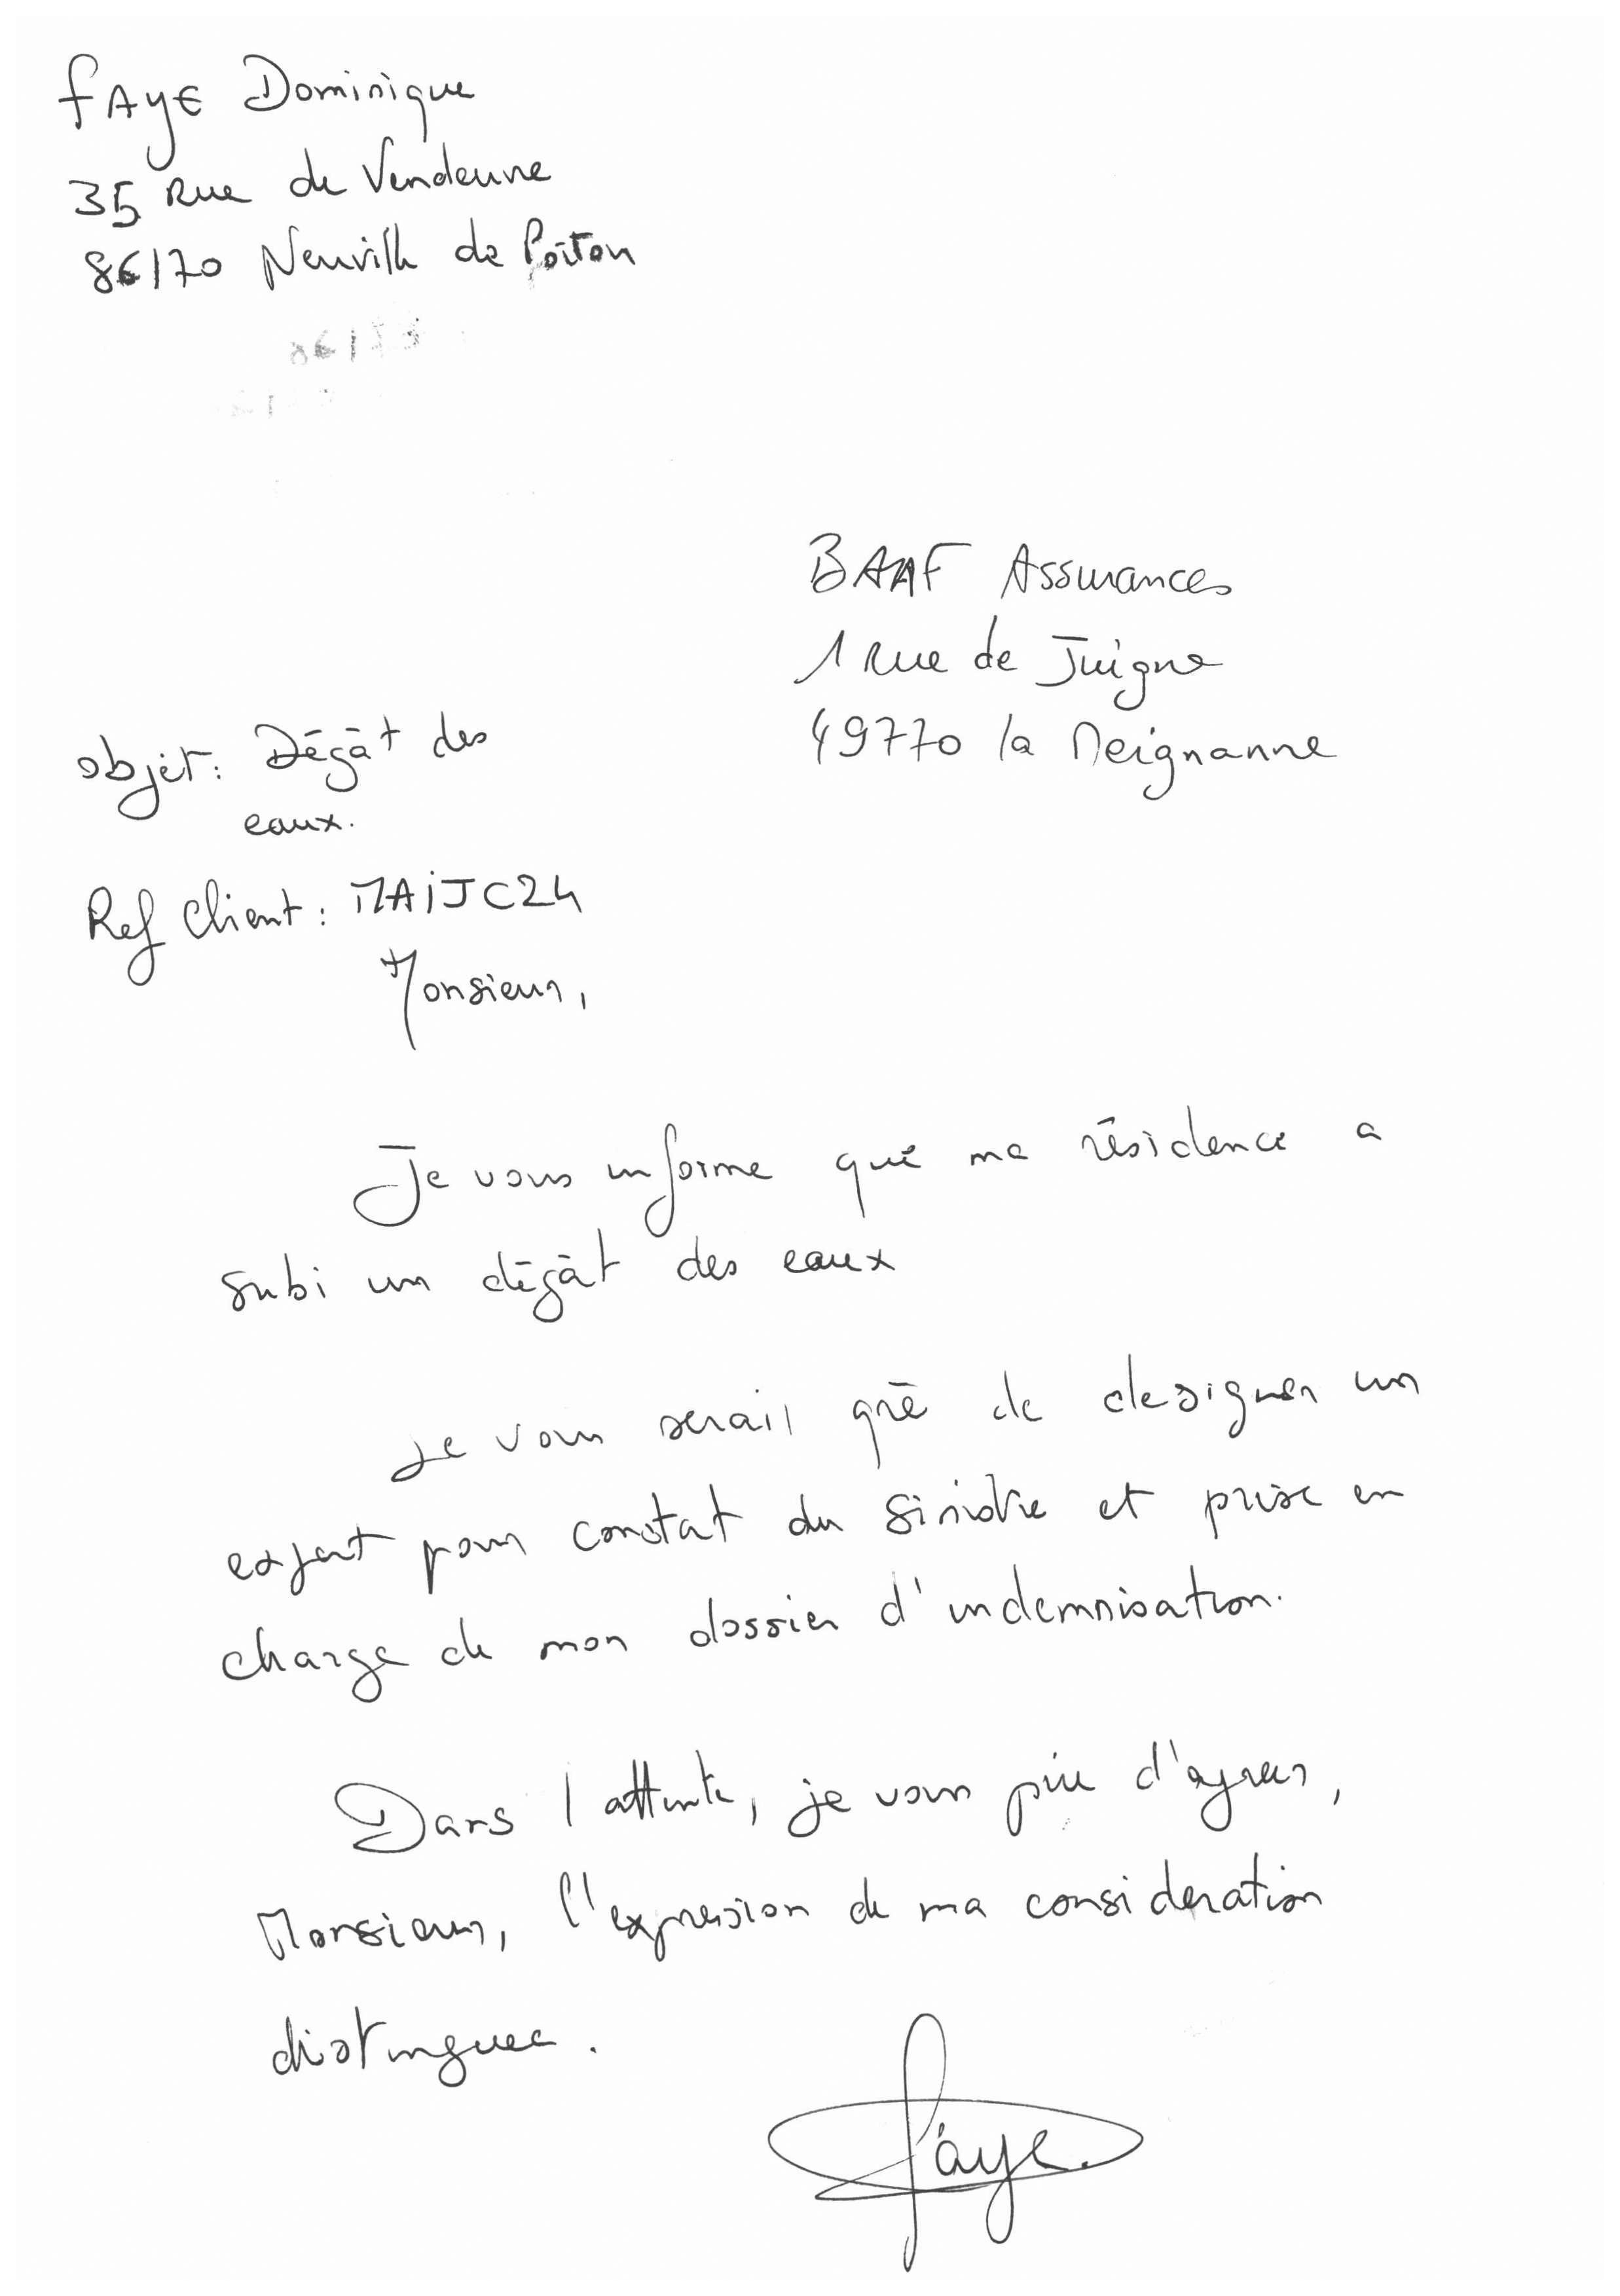 FAYE Dominique
35 Rue de Vendeuvre
86170 Neuville de Poitou
BAAF Assurances
1 Rue de Juigne
49770 la Meignanne
objet: Dégât des
eaux.
Ref Client: MAiJC24
Monsieur,
Je vous informe que ma résidence a
subi un dégât des eaux
Je vous serait gré de designer un
expert pour constat du sinistre et prise en
charge de mon dossier d'indemnisation.
Dans l attente, je vous prie d'agreer,
Monsieur, l'expression de ma consideration
distinguee.
faye.